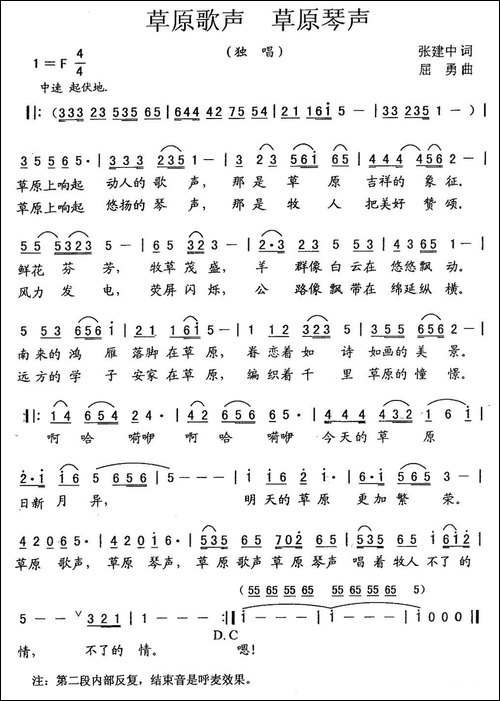 草原歌声 草原琴声
(独 唱)
1=F 4/4
张建中 词
中速 起伏地.
屈 勇 曲
‖:(333 23 535 65|644 42 75 54|21 161 5-|33 235 1-)|
3 5 5 6 5·|3 3 3 2 3 5 1-|3 2 3 5 6 1 6 5|4 4 4 4 5 6 2-|
草原上响起 动人的歌 声, 那是草 原 吉祥的 象征.
草原上响起 悠扬的琴 声, 那是牧 人 把美好 赞颂.
5 5 5323 5-|6 5 323 2-|2·3 223 5 5|4 3 65 1-|
鲜花 芬 芳, 牧草茂 盛, 羊 群像白云在 悠悠飘 动.
风力 发 电, 荧屏闪 烁, 公 路像飘 带在 绵延纵 横.
5 53 6561|21 161 5-|3 2 3 323 5|3 2 3 6 5 1-|
南来的鸿 雁 落脚在草原, 眷恋着如 诗 如画的美 景.
远方的学 子 安家在草原, 编织着千 里 草原的憧 憬.
‖:14 654 24|42 656 54|444 432|1 6 1|
啊哈 嗬咿 啊哈 嗬咿 今天的草 原
2·1 16 5 5656|5---|1 16 2 1·|6·1 565 3-|
日新月异, 明天的草原 更加繁 荣.
42065·|42016·|535 65 702 65|535 65 1612|
草原 歌声, 草原 琴声, 草原歌声 草原琴声 唱着牧人不了的
(55 65 65 65 55 65 65 65 5)
5--∨321|1---:‖1---|1---|1000‖
D.C
情, 不了的 情。 嗯!
注: 第二段内部反复, 结束音是呼麦效果。